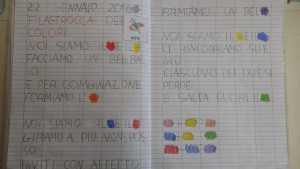 22 GENNAIO 2016
FILASTROCCA DEI
COLORI
NOI SIAMO E IL
FACCIAMO UN BEL BAL
LO
E PER COMBINAZIONE
FORMIAMO L'
NOI SIAMO IL E IL
GIRIAMO A PIÙ NON POS
SO
UNITI CON AFFETTO
FORMIAMO UN BEL
NOI SIAMO IL E IL
CI RINCORRIAMO SU E
GIÙ
CIASCUNO DEI DUE SI
PERDE
E SALTA FUORI IL